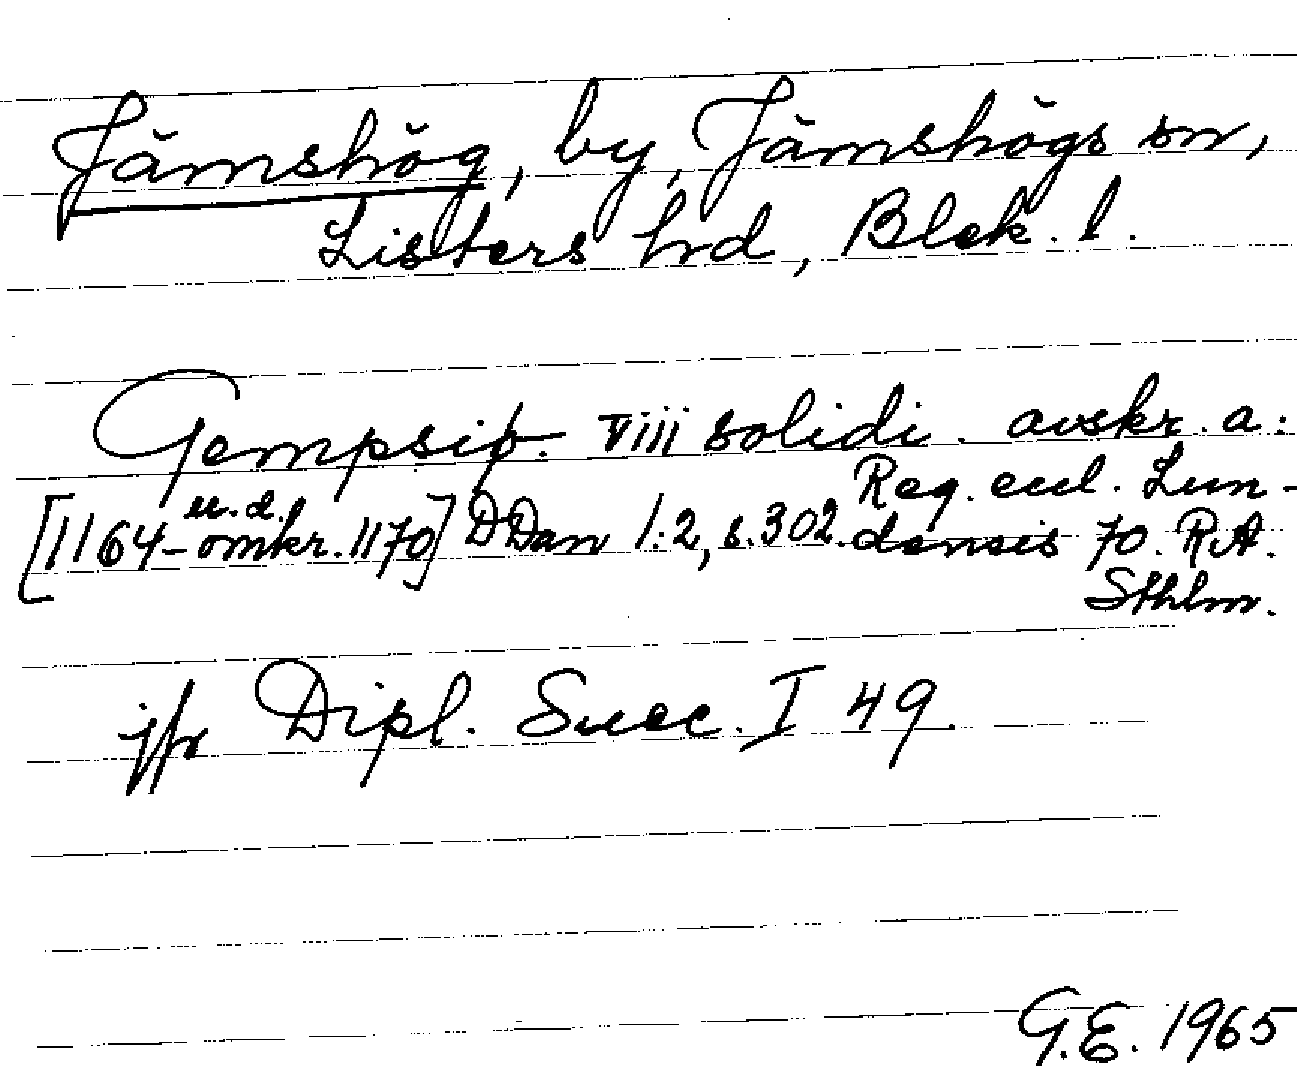 Jämshög, by, Jämshögs sn,
Listers hrd, Blek. l.
Gempsiþ. viii solidi. avskr. a:
Reg. eccl. Lun-
u.d.
[1164-omkr. 1170] DDan 1:2, s. 302. densis 70. RA.
Sthlm.
jfr Dipl. Suec. I 49.
G.E. 1965